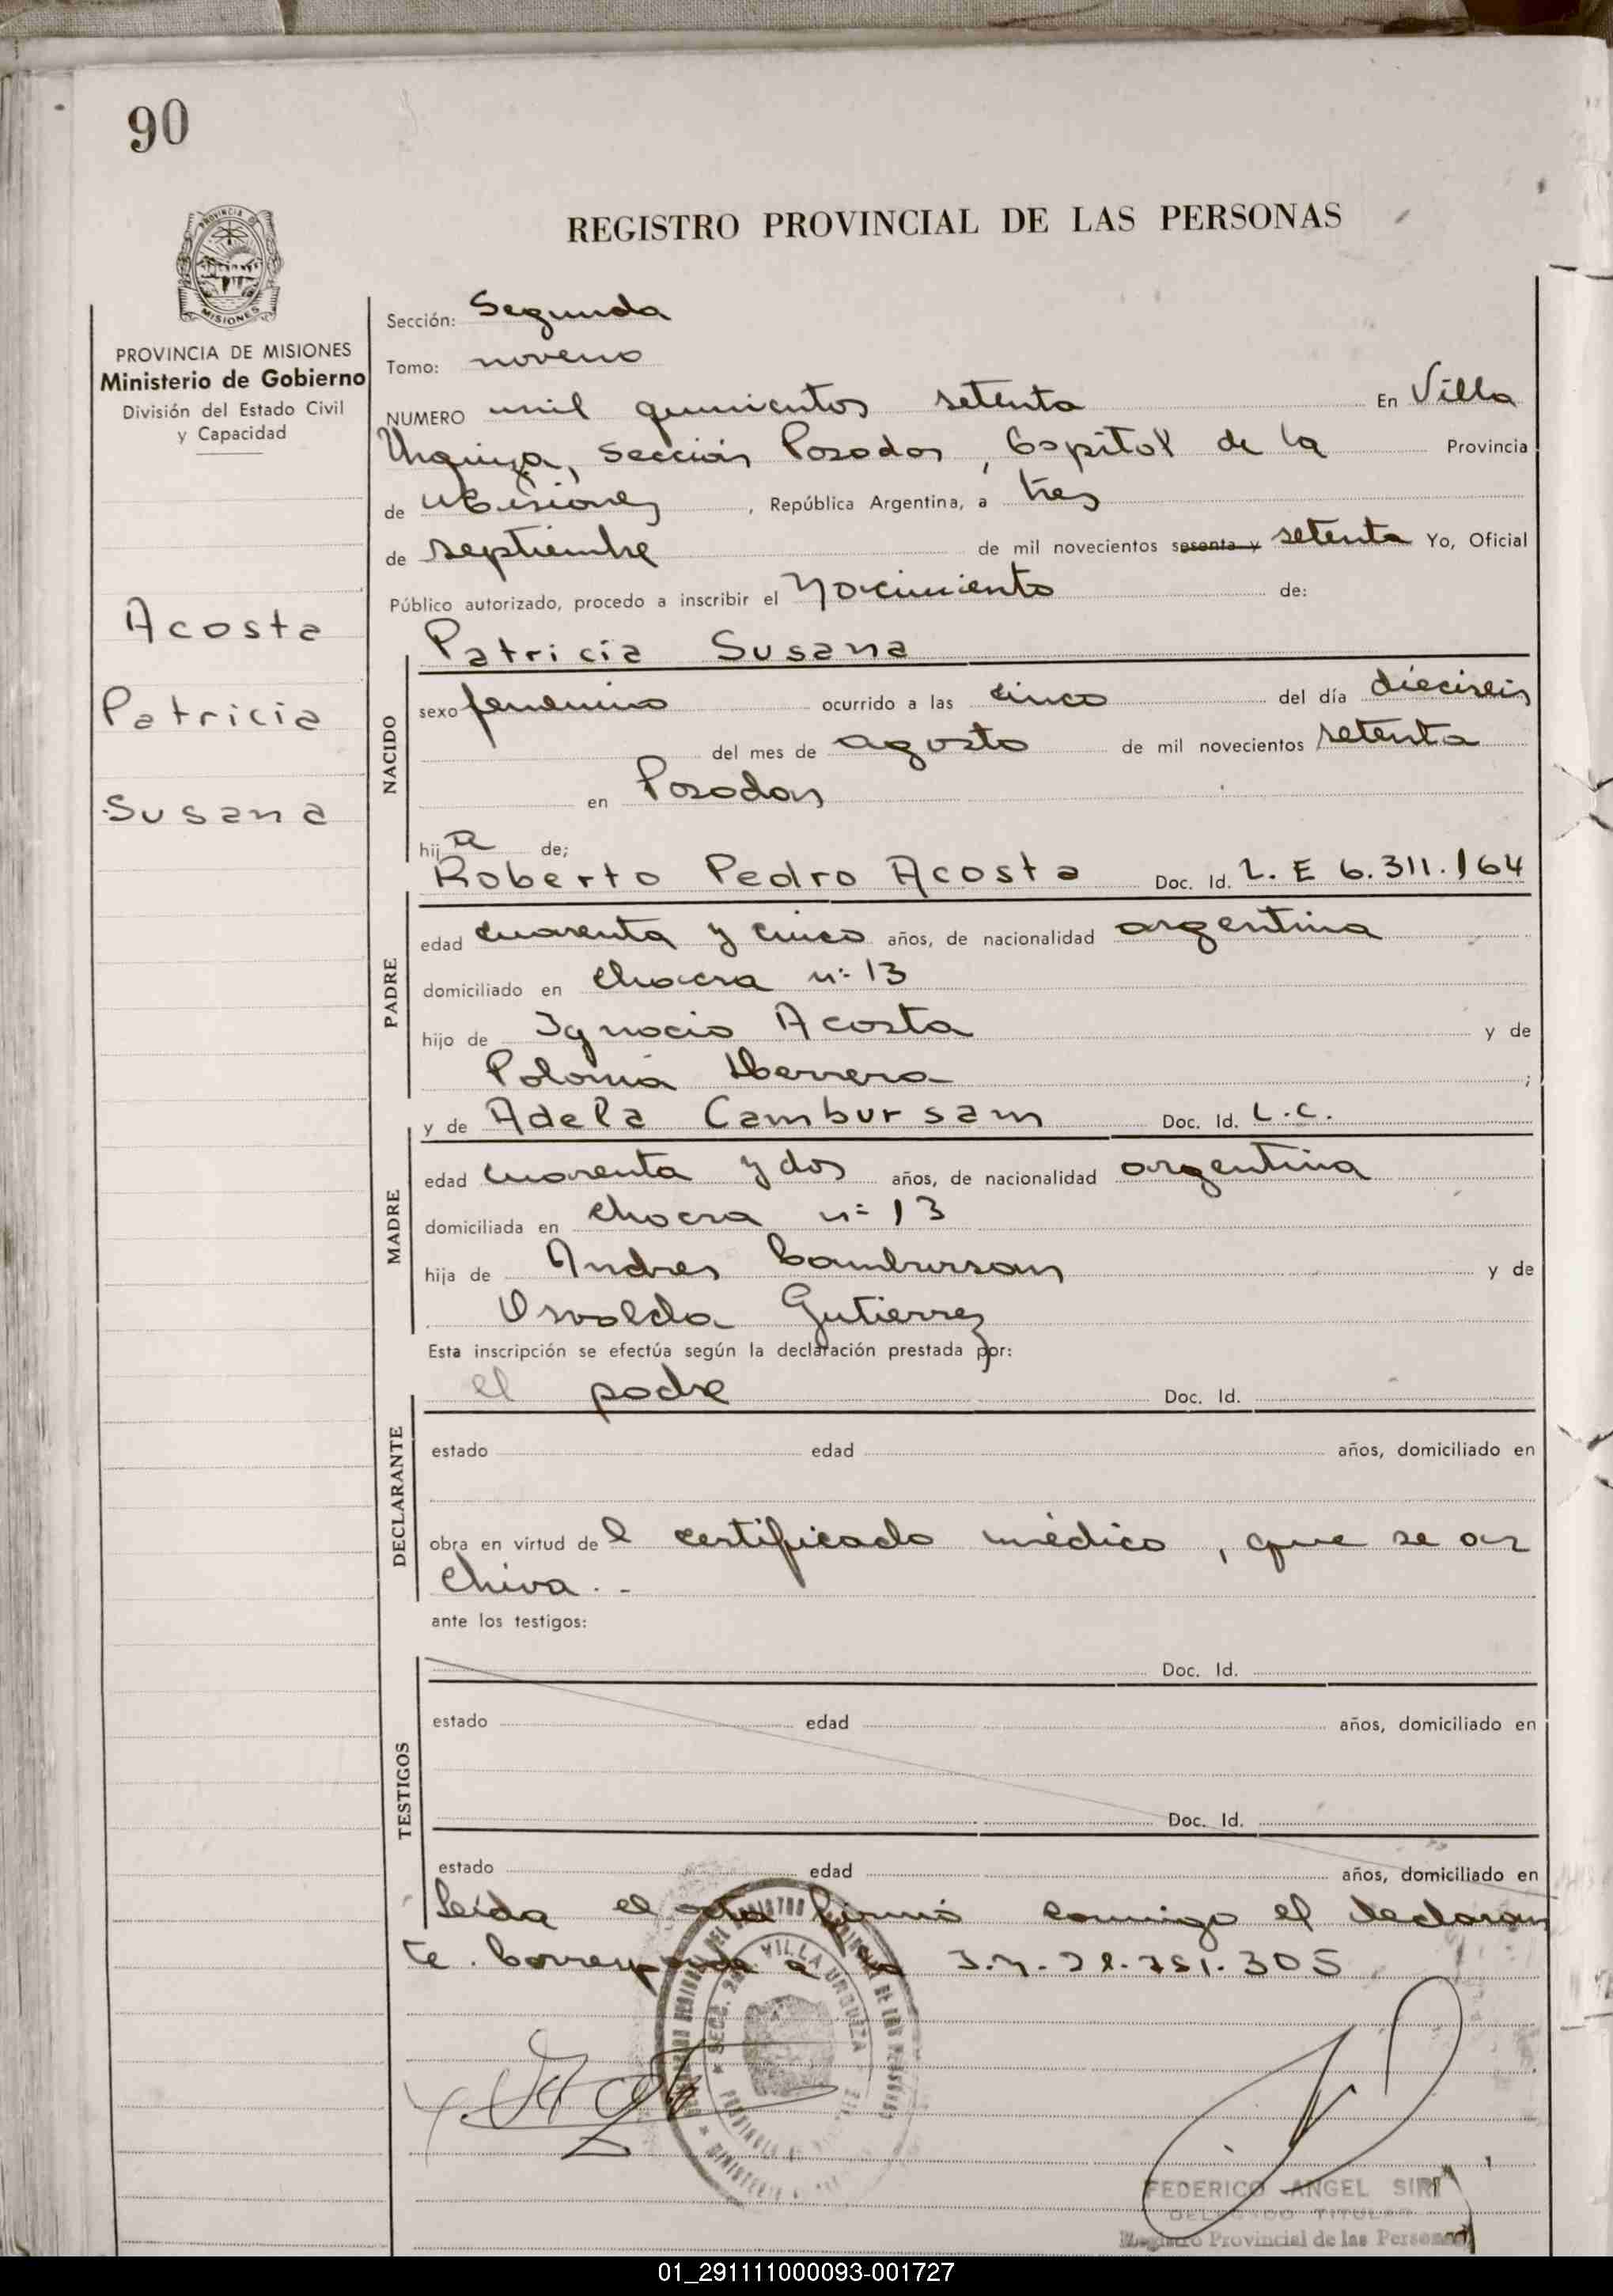 90
REGISTRO PROVINCIAL DE LAS PERSONAS
MISIONES
PROVINCIA DE MISIONES
Ministerio de Gobierno
División del Estado Civil
y Capacidad
Acosta
Patricia
Susana
Sección: Segunda
Tomo: noveno
NUMERO mil quinientos setenta En Villa
Urquiza, sección Posadas, Capital de la Provincia
de Misiones, República Argentina, a tres
de septiembre de mil novecientos sesenta y setenta Yo, Oficial
Público autorizado, procedo a inscribir el Nacimiento de:
NACIDO
Patricia Susana
sexo femenino ocurrido a las cinco del día dieciseis
del mes de agosto de mil novecientos setenta
en Posadas
hija de;
PADRE
Roberto Pedro Acosta Doc. Id. L. E 6.311.164
edad cuarenta y cinco años, de nacionalidad argentina
domiciliado en chacra n: 13
hijo de Ignacio Acosta y de
Polonia Herrera ;
MADRE
y de Adela Cambursam Doc. Id. L.C.
edad cuarenta y dos años, de nacionalidad argentina
domiciliada en chacra n: 13
hija de Andres Cambursan y de
Osvalda Gutierrez
Esta inscripción se efectúa según la declaración prestada por:
DECLARANTE
el padre Doc. Id.
estado edad años, domiciliado en
obra en virtud del certificado médico, que se ar
chiva. -
ante los testigos:
TESTIGOS
Doc. Id.
estado edad años, domiciliado en
Doc. Id.
estado edad años, domiciliado en
Leída el acta firmó conmigo el declaran
te. Corresponde a
VILLA URQUIZA
FEDERICO ANGEL SIRI
DELEGADO TITULAR
Registro Provincial de las Personas
01_291111000093-001727